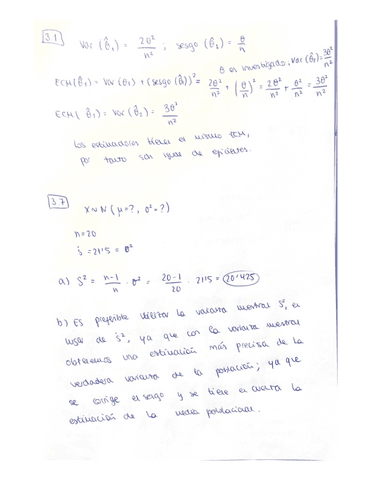 3.1
Var (θ̂₁) = 2θ²/n² ; sesgo (θ̂₁) = θ/n
θ̂ es insesgado, Var (θ̂₂) = 3θ²/n²
ECM(θ̂₁) = Var (θ̂₁) + (sesgo (θ̂₁))² = 2θ²/n² + (θ/n)² = 2θ²/n² + θ²/n² = 3θ²/n²
ECM( θ̂₂) = Var (θ̂₂) = 3θ²/n²
Los estimadores tienen el mismo ECM,
por tanto son igual de eficientes.
3.7
X ~ N ( μ=?, σ²=?)
n=20
s = 21'5 = σ²
a) S² = n-1/n · σ² = 20-1/20 · 21'5 = 20'425
b) Es preferible utilizar la varianza muestral S², en
lugar de s², ya que con la varianza muestral
obtenemos una estimación más precisa de la
verdadera varianza de la población; ya que
se corrige el sesgo y se tiene en cuenta la
estimación de la media poblacional.